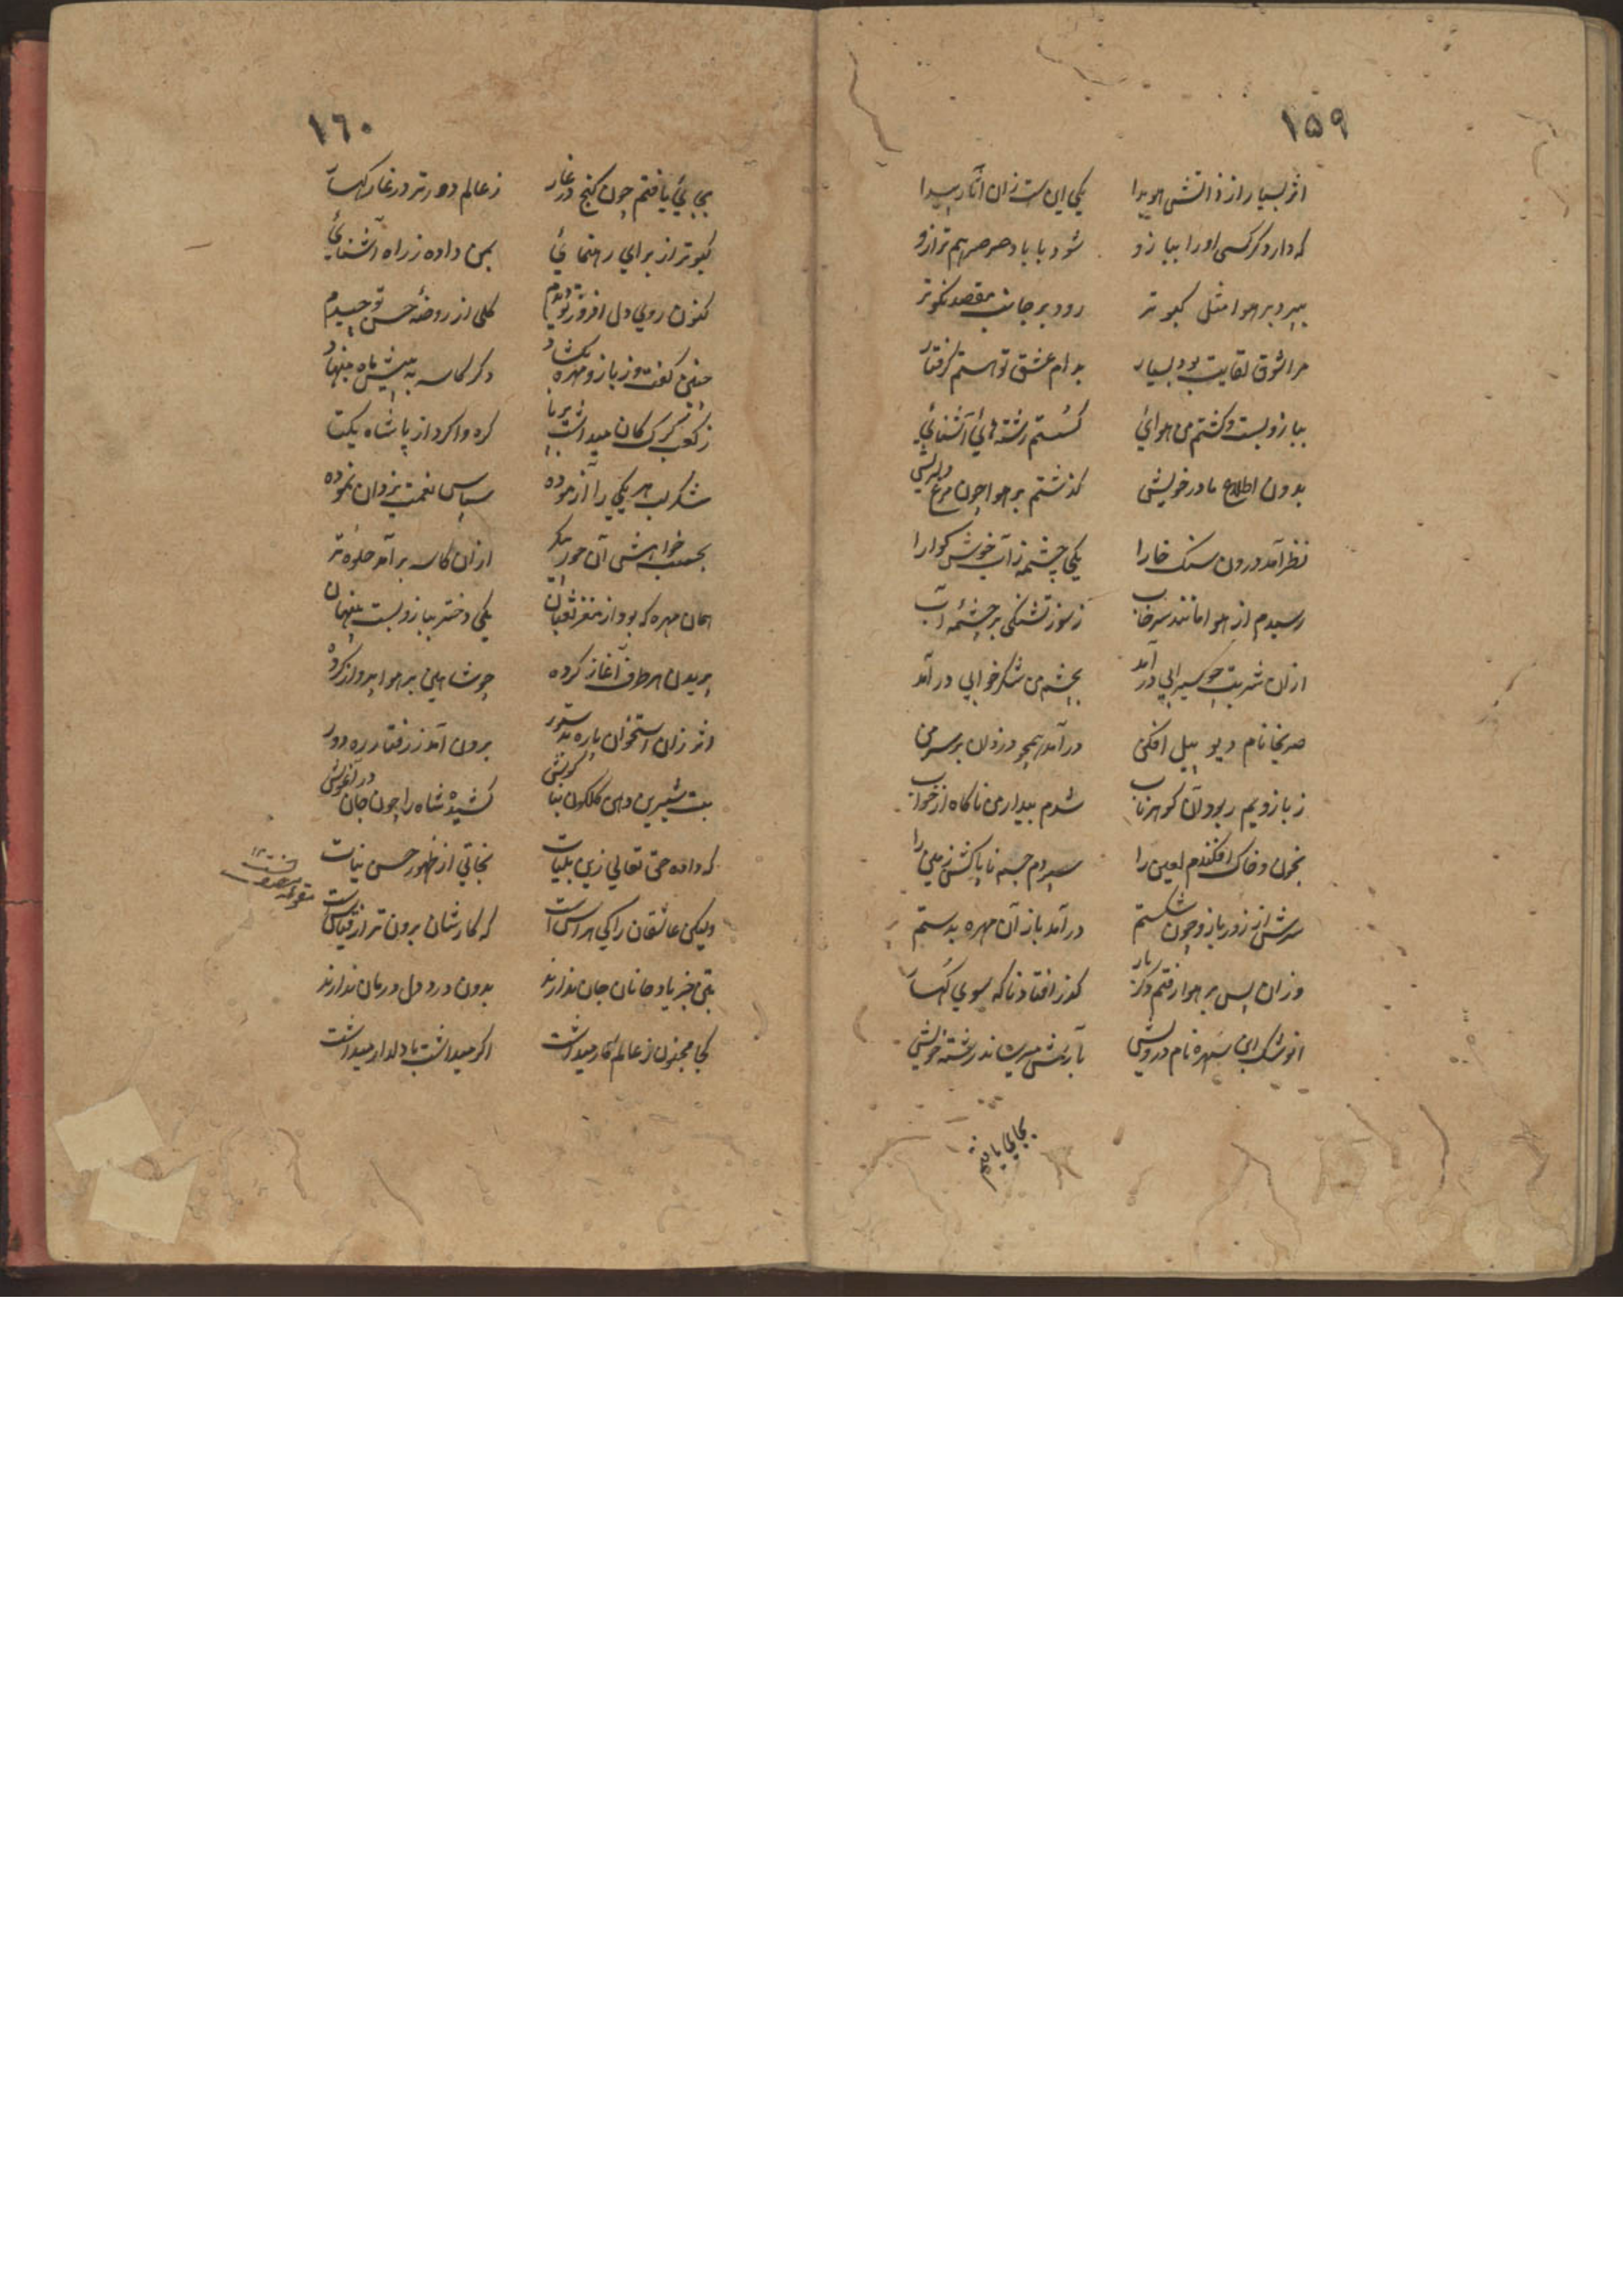 ۱۵۹
اثر بسیار از ذاتش هویدا یکی این ست زان اثار پیدا
که دارد کر کسی اورا ببازو شود با باد صرصر هم ترازو
بپرد بر هوا مثل کبوتر رود بر جانب مقصد نکوتر
مرا شوق لقایت بود بسیار بدام عشق تو هستم گرفتار
ببازو بست و گشتم من هوائی گسستم رشته هائی آشنائی
بدون اطلاع مادر خویش گذشتم بر هوا چون مرغ
نظر آمد درون سنک خارا یکی چشمه ز آب خوش کوارا
رسیدم از هوا مانند سرخاب ز سوز تشنکی بر چشمهٔ آب
ازان شربت چو سیرابی در آمد بچشم من شکر خوابی در آمد
صریخا نام دیو پیل افکن در آمد همچو دزدان بر سر من
ز بازویم ربود آن کوهر ناب شدم بیدار من ناکاه از خواب
بخون و خاک افکندم لعین را سپردم جسم ناپاکش زمین را
سرش از زور بازو چون شکستم در آمد باز آن مهره بدستم
وزان پس بر هوا رفتم دکر بار گذر افتاد ناکه سوی کهسار
انوشک ابن سهره نام درویش
بجائی یافتم
۱۶۰
بجائی یافتم چون کنج در غار ز عالم دورتر در غار کهسار
کبوتر از برای رهنمائی بمن داده ز راه آشنائی
کنون روی دل افروز تو دیدم کلی از روضهٔ حسن تو چیدم
چنین کفت و ز بازو مهره بکشاد دکر کاسه به پیش ماه بنهاد
ز کعب کرک کان میداشت بر پا کره وا کرد از پا شاه یکتا
شکر لب هر یکی را آزموده سپاس نعمت یزدان نموده
بحسب خواهش آن حور پیکر ازان کاسه بر آمد حلوه تر
همان مهره که بود از مغز ثعبان یکی دختر ببازو بست پنهان
پریدن هر طرف آغاز کرده چو شاهین بر هوا پرواز کرده
اثر زان استخوان پاره بدستور برون آمد ز رفتار ره دور
بت شیرین دهن کلکون بناکوش کشیده شاه را چون جان در آغوش
که داده حق تعالی زین بلیات نجاتی از ظهور حسن نیات
ولیکن عاشقان را کی هراس است که کار شان برون تر از قیاس است
بتن جز یاد جانان جان ندارند بدون درد دل درمان ندارند
کجا مجنون ز عالم کار میداشت اکر میداشت با دلدار میداشت